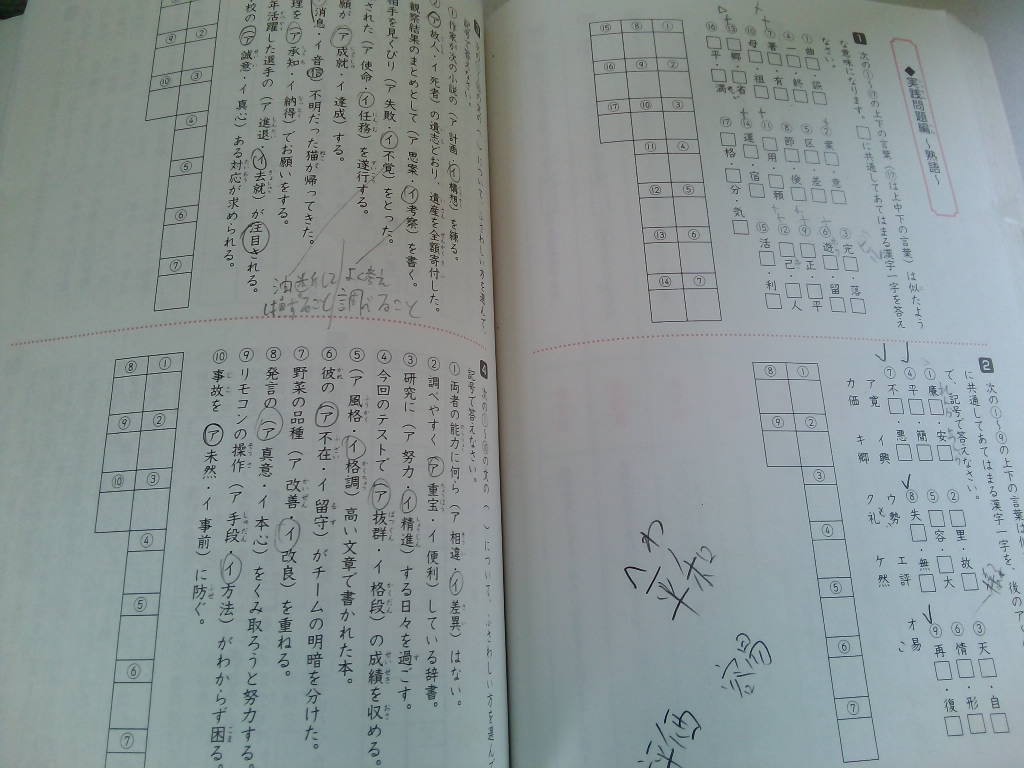 ◆実践問題編 ～熟語～
1 次の①～⑰の上下の言葉（⑰は上中下の言葉）は似たよう
な意味になります。□に共通してあてはまる漢字一字を答え
なさい。
④ 一□・終□
⑤ 区□・差□
⑥ 遊□・留□
⑦ 著□・有□
⑧ 即□・便□
⑨ □正・□平
⑩ 母□・祖□
⑪ □用・□頼
⑫ □己・□人
⑬ □郷・□省
⑮ □活・□利
⑯ 平□・□満
⑰ □格・□分・気□
2 次の①～⑨の上下の言葉は似
に共通してあてはまる漢字一字を、後の
で、記号で答えなさい。
① 廉□・安□
② □里・故□
③ 天□・自□
④ 平□・閑□
⑤ □容・□大
⑥ □情・□形
⑦ 不□・悪□
⑧ 失□・無□
⑨ 再□・復□
ア 寛 イ 興 ウ 勢 エ 評 オ 易
カ 価 キ 郷 ク 礼 ケ 然 コ
平和
記号で答えなさい。
① 作家が次の小説の（ア 計画・イ 構想）を練る。
② （ア 故人・イ 死者）の遺志どおり、遺産を全額寄付した。
観察結果のまとめとして（ア 思案・イ 考察）を書く。
相手を見くびり（ア 失敗・イ 不覚）をとった。
された（ア 使命・イ 任務）を遂行する。
願が（ア 成就・イ 達成）する。
消息・イ 音信）不明だった猫が帰ってきた。
理を（ア 承知・イ 納得）でお願いをする。
年活躍した選手の（ア 進退・イ 去就）が注目される。
校の（ア 誠意・イ 真心）ある対応が求められる。
よく考え
調べること
油断して
損すること
4 次の①～⑩の文の（ ）について、ふさわしい方を選んで
記号で答えなさい。
① 両者の能力に何ら（ア 相違・イ 差異）はない。
② 調べやすく（ア 重宝・イ 便利）している辞書。
③ 研究に（ア 努力・イ 精進）する日々を過ごす。
④ 今回のテストで（ア 抜群・イ 格段）の成績を収める。
⑤ （ア 風格・イ 格調）高い文章で書かれた本。
⑥ 彼の（ア 不在・イ 留守）がチームの明暗を分けた。
⑦ 野菜の品種（ア 改善・イ 改良）を重ねる。
⑧ 発言の（ア 真意・イ 本心）をくみ取ろうと努力する。
⑨ リモコンの操作（ア 手段・イ 方法）がわからず困る。
⑩ 事故を（ア 未然・イ 事前）に防ぐ。